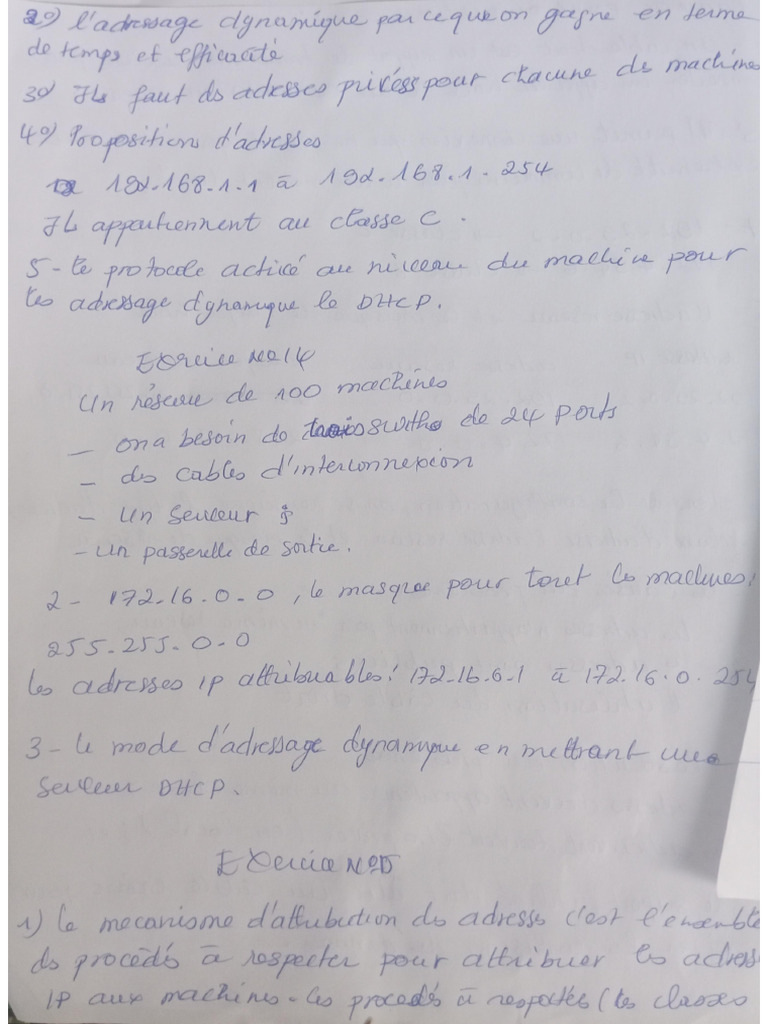 2°) l'adressage dynamique parceque on gagne en terme
de temps et efficacité
3°) Ils faut des adresses privées pour chacune de machines
4°) Proposition d'adresses
192.168.1.1 à 192.168.1.254
Ils appartiennent au classe C.
5- le protocole activé au niveau du machine pour
les adressage dynamique le DHCP.
Exercice No 14
Un réseau de 100 machines
- on a besoin de trois switchs de 24 ports
- des cables d'interconnexion
- un serveur
- un passerelle de sortie.
2- 172.16.0.0, le masque pour tout les machines:
255.255.0.0
les adresses IP attribuables: 172.16.0.1 à 172.16.0.254
3- le mode d'adressage dynamique en mettrant une
serveur DHCP.
Exercice No 5
1) le mecanisme d'attribution des adresses c'est l'ensemble
des procédés à respecter pour attribuer les adress
IP aux machines. les procedés à respectés (les classes